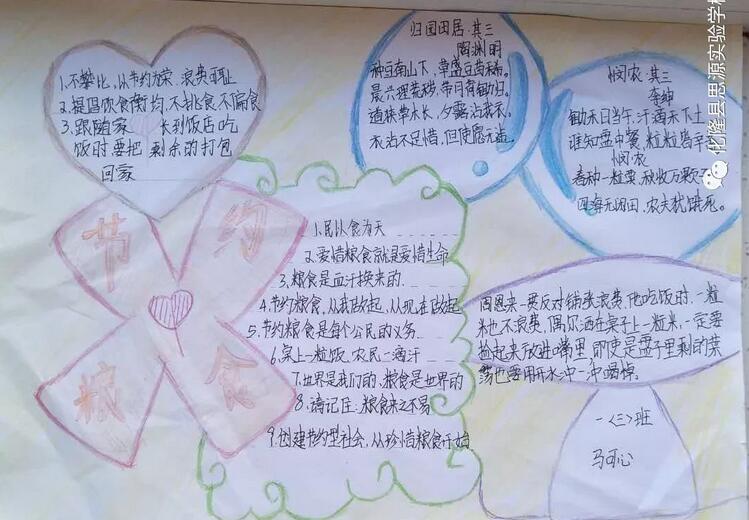 1.不攀比,从节约为荣、浪费可耻
2.提倡饮食衡均、不挑食不偏食
3.跟随家长到饭店吃
饭时要把剩余的打包
回家
归园田居·其三
陶渊明
种豆南山下,草盛豆苗稀。
晨兴理荒秽,带月荷锄归。
道狭草木长,夕露沾我衣。
衣沾不足惜,但使愿无违。
悯农·其三
李绅
锄禾日当午,汗滴禾下土
谁知盘中餐,粒粒皆辛
悯农
春种一粒粟,秋收万颗子
四海无闲田、农夫犹饿死。
节约
粮食
1.民以食为天
2.爱惜粮食就是爱惜生命
3.粮食是血汗换来的.
4.节约粮食,从我做起,从现在做起
5.节约粮食是每个公民的义务
6.桌上一粒饭、农民一滴汗
7.世界是我们的、粮食是世界的
8.请记住、粮食来之不易
9.创建节约型社会,从珍惜粮食开始
周恩来一贯反对铺张浪费,他吃饭时、一粒
米也不浪费、偶尔洒在桌子上一粒米、一定要
捡起来放进嘴里,即使是盘子里剩的菜
汤也要用开水冲一冲喝掉
一〈三〉班
马可心
化隆县思源实验学校